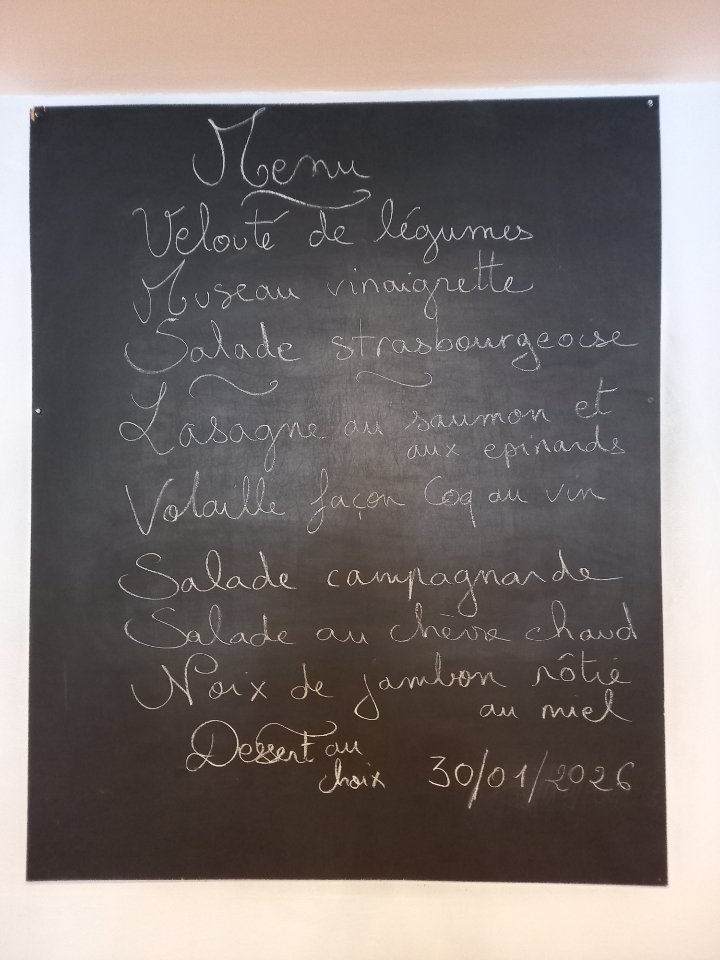 Menu
Velouté de légumes
Museau vinaigrette
Salade strasbourgeoise
Lasagne au saumon et
aux epinards
Volaille façon Coq au vin
Salade campagnarde
Salade au chèvre chaud
Noix de jambon rôtie
au miel
Dessert au
choix 30/01/2026